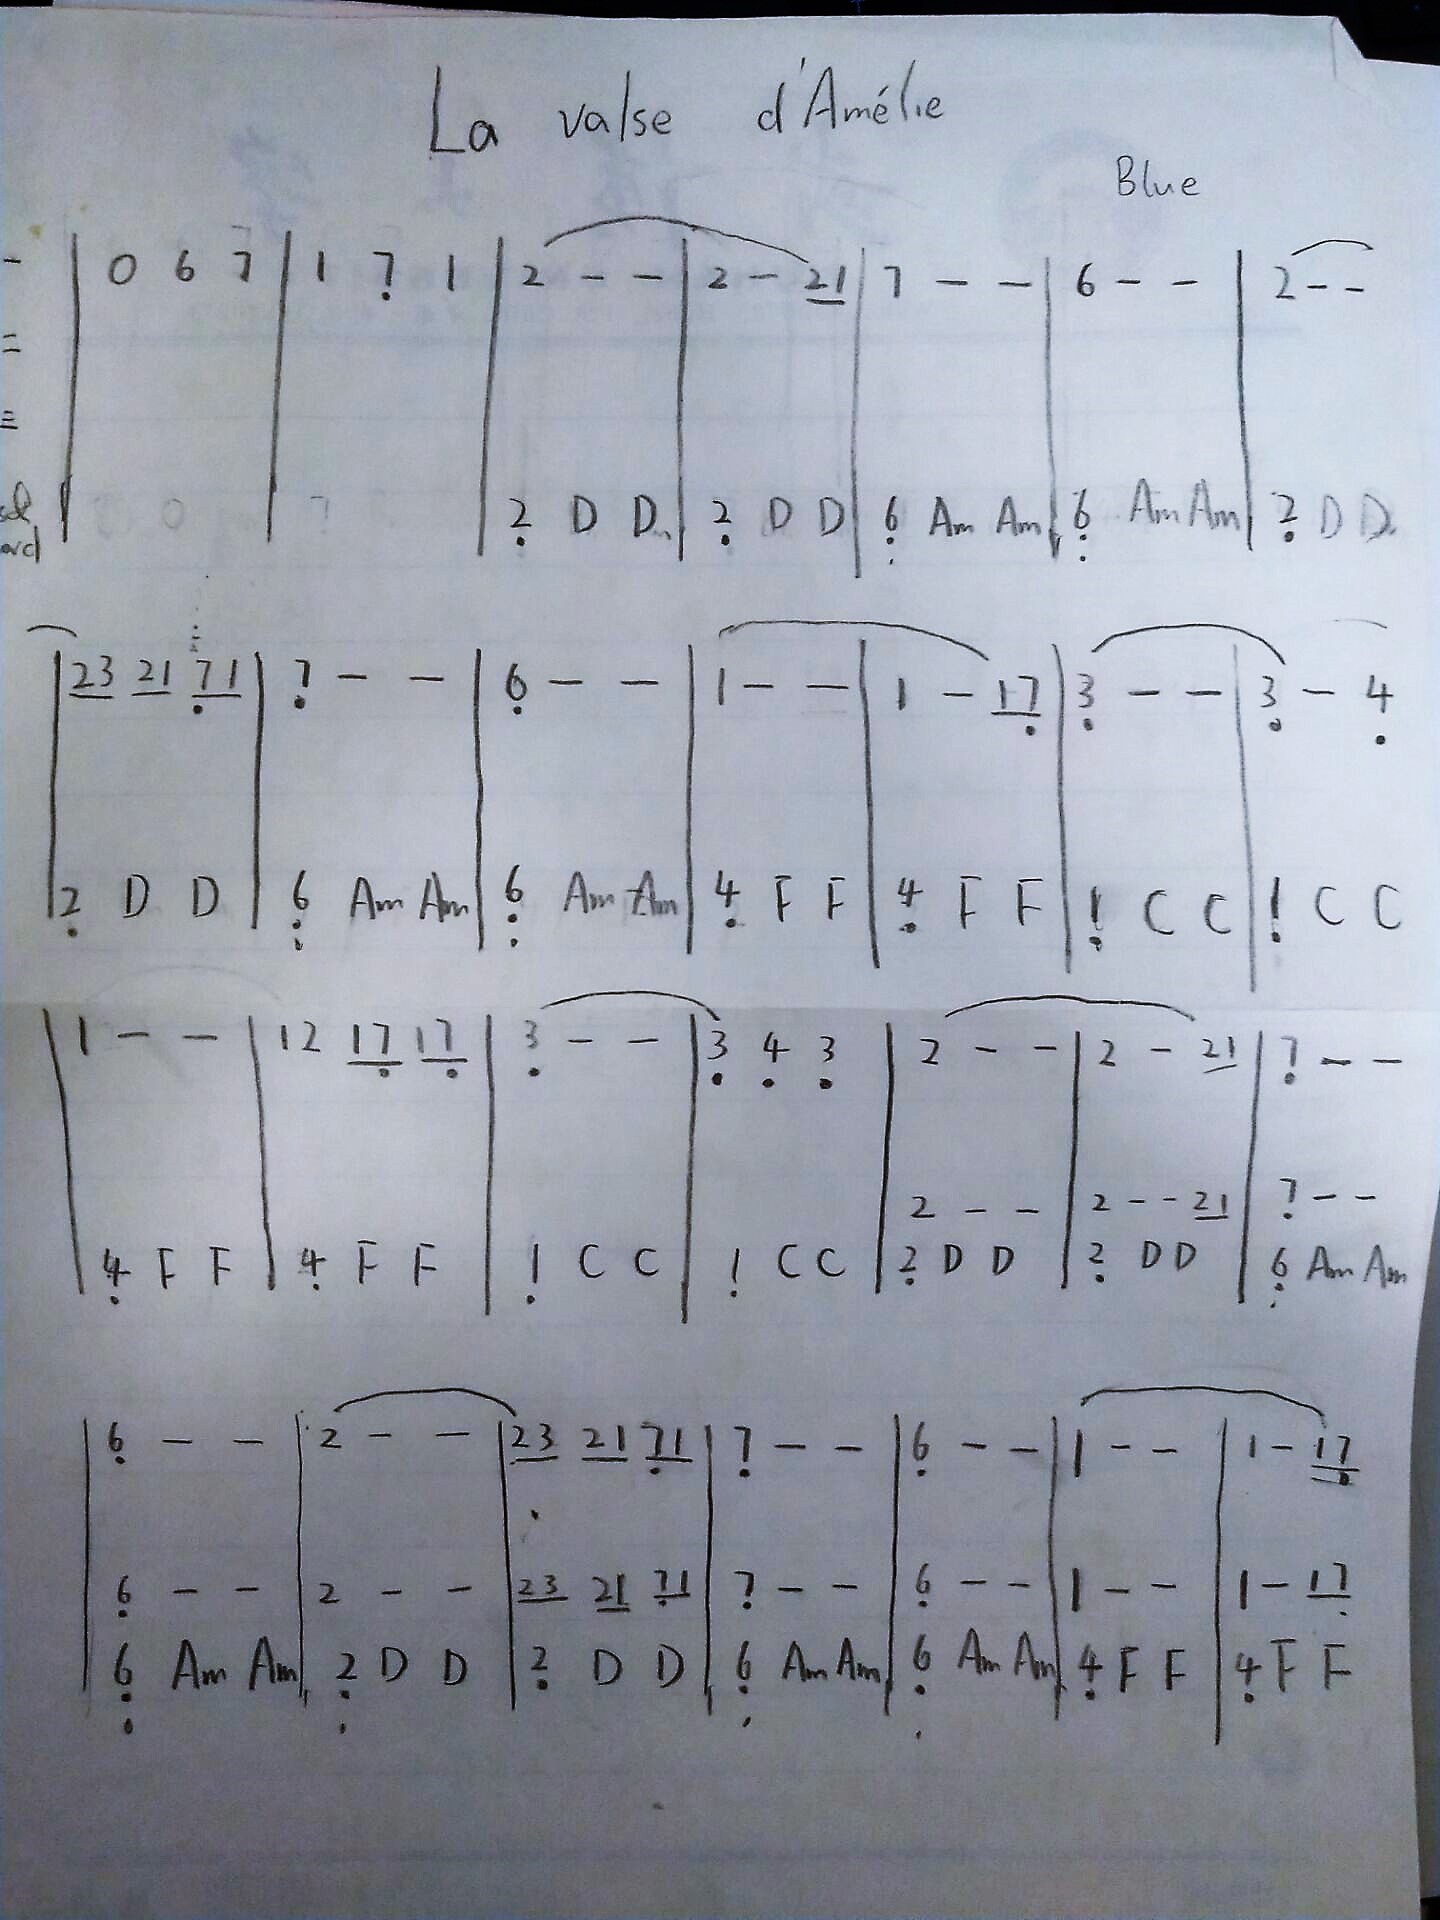 La valse d'Amélie
Blue
- | 0 6 7 | 1 7 1 | 2 - - | 2 - 21 | 7 - - | 6 - - | 2 - -
=
≡
2 D D | 2 D D | 6 Am Am | 6 Am Am | 2 D D
| 23 21 71 | 7 - - | 6 - - | 1 - - | 1 - 17 | 3 - - | 3 - 4
2 D D | 6 Am Am | 6 Am Am | 4 F F | 4 F F | 1 C C | 1 C C
| 1 - - | 12 17 17 | 3 - - | 3 4 3 | 2 - - | 2 - 21 | 7 - -
2 - - | 2 - - 21 | 7 - -
4 F F | 4 F F | 1 C C | 1 C C | 2 D D | 2 D D | 6 Am Am
| 6 - - | 2 - - | 23 21 71 | 7 - - | 6 - - | 1 - - | 1 - 17
6 - - | 2 - - | 23 21 71 | 7 - - | 6 - - | 1 - - | 1 - 17
6 Am Am | 2 D D | 2 D D | 6 Am Am | 6 Am Am | 4 F F | 4 F F